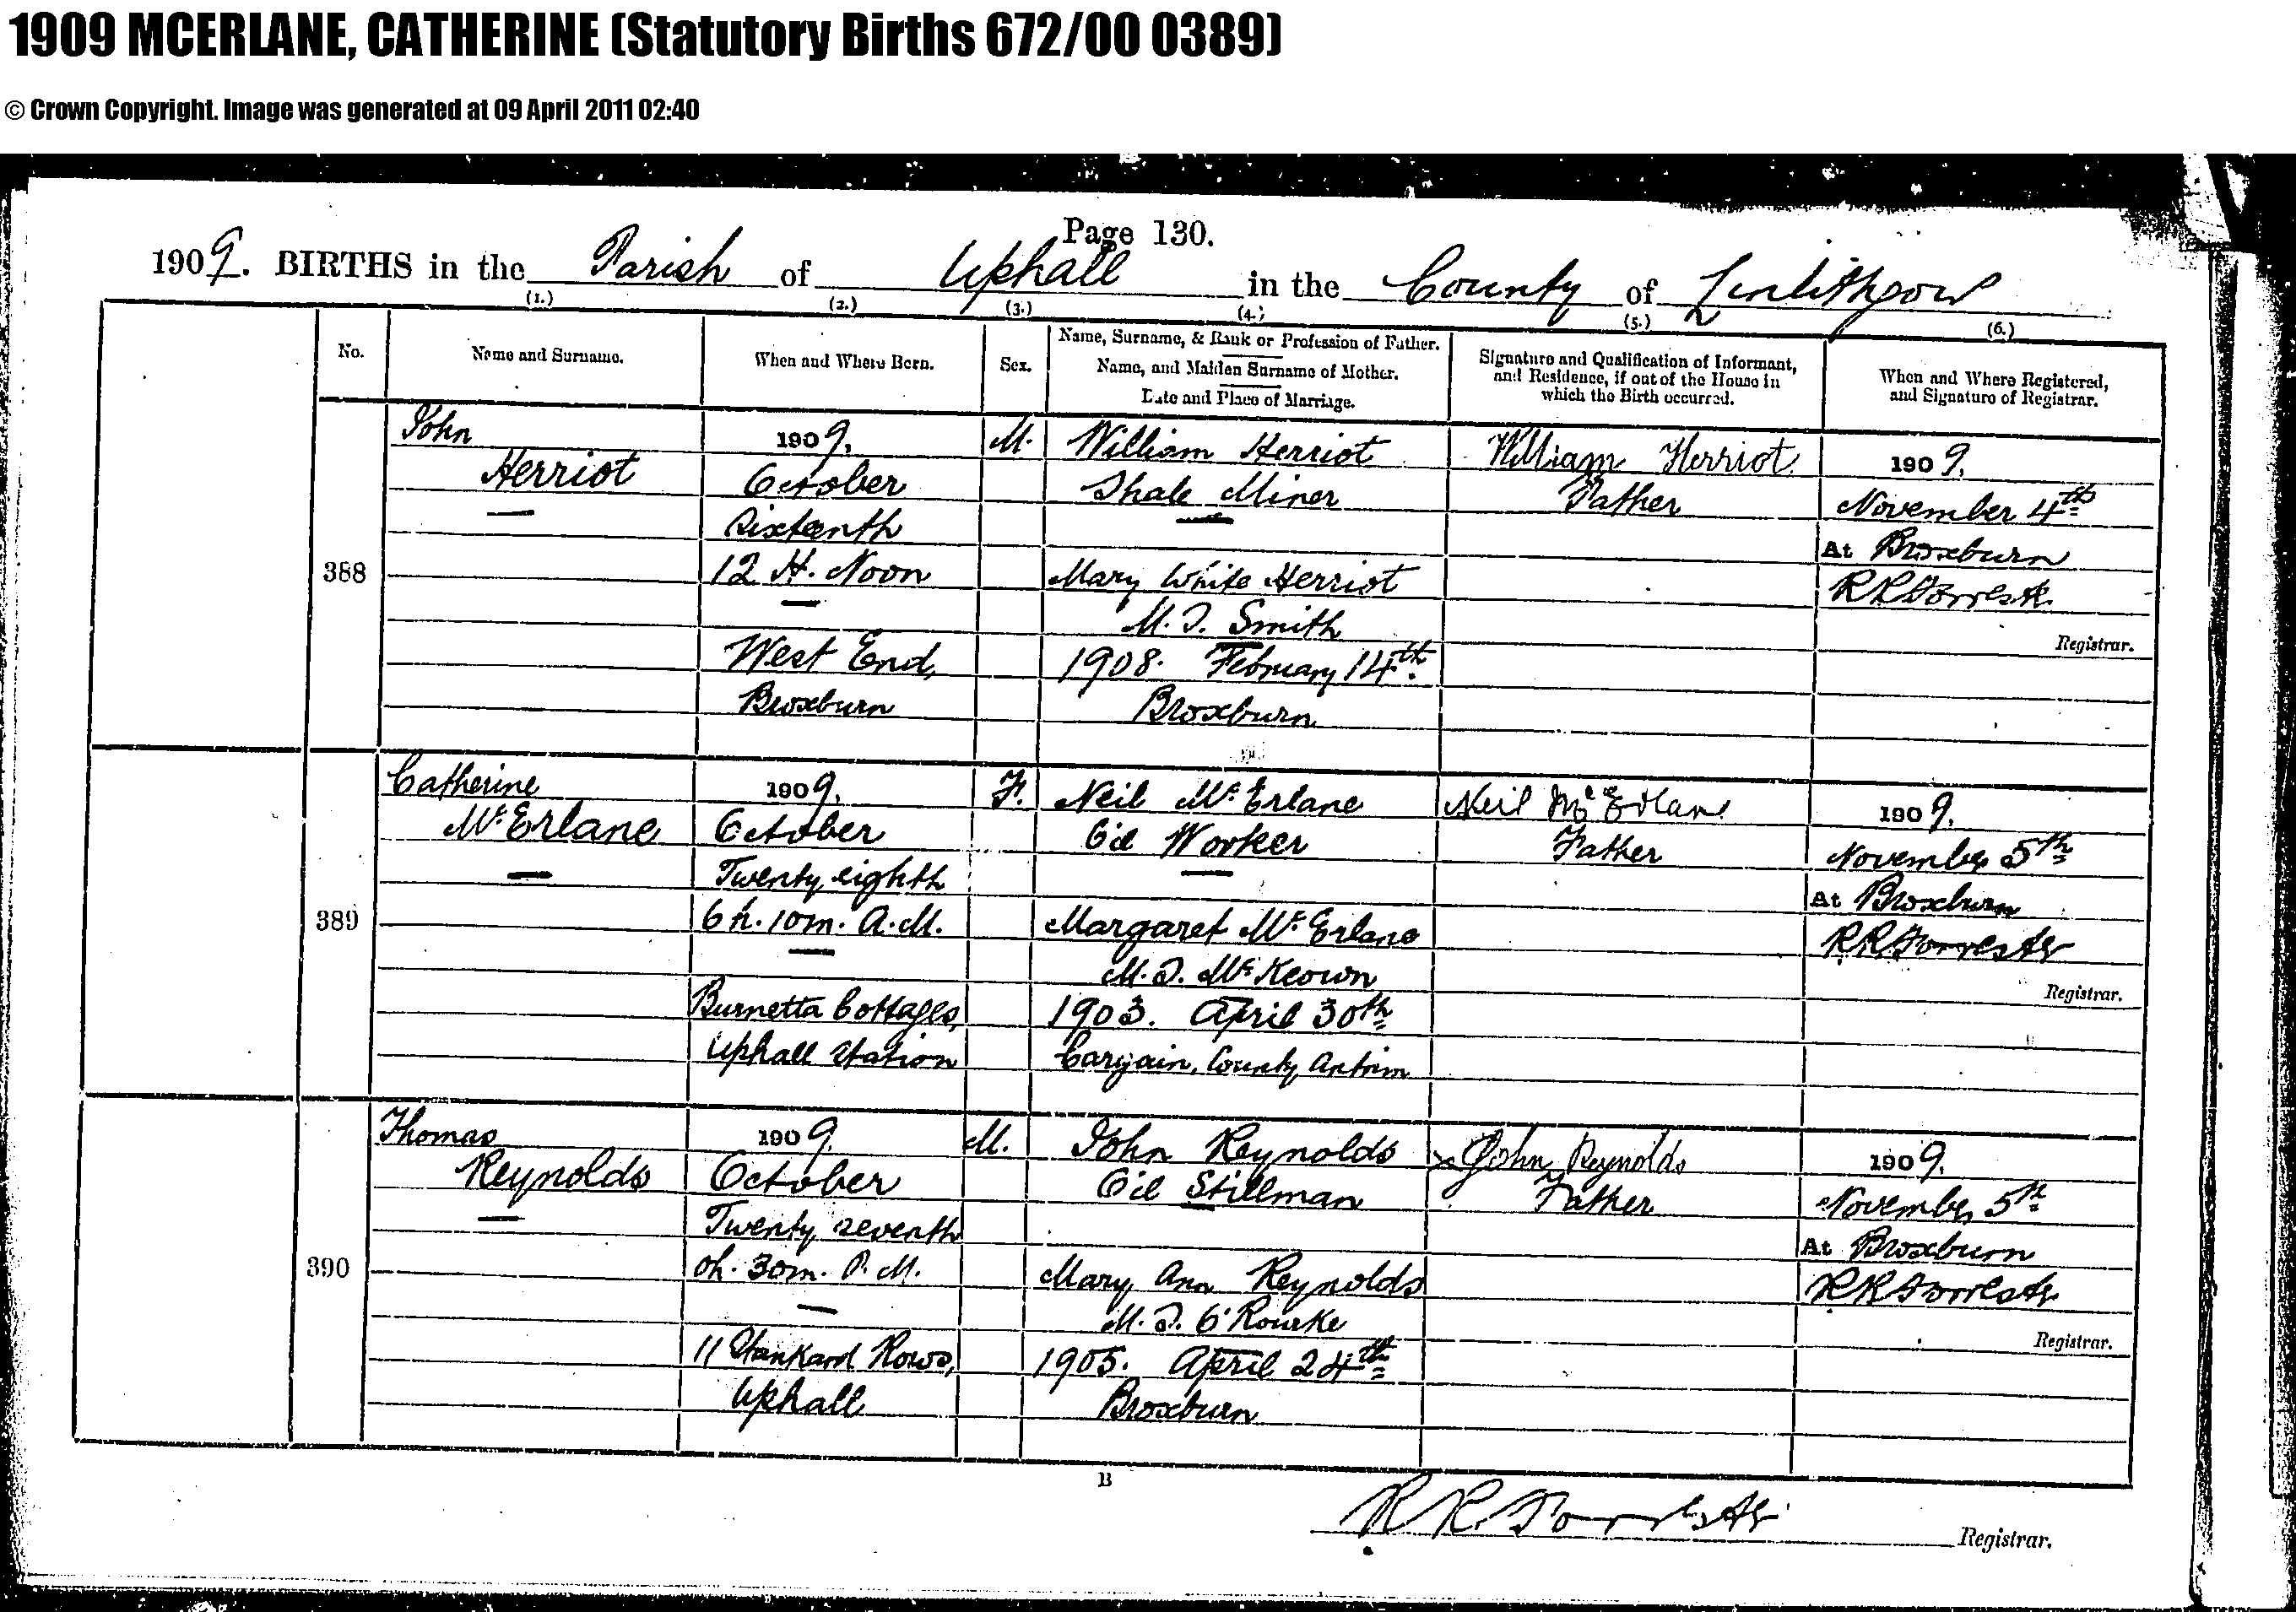 1909 MCERLANE, CATHERINE (Statutory Births 672/00 0389)
© Crown Copyright. Image was generated at 09 April 2011 02:40
Page 130.
1909. BIRTHS in the Parish of Uphall in the County of Linlithgow
(1.) (2.) (3.) (4.) (5.) (6.)
No.
Name and Surname.
When and Where Born.
Sex.
Name, Surname, & Rank or Profession of Father.
Name, and Maiden Surname of Mother.
Date and Place of Marriage.
Signature and Qualification of Informant,
and Residence, if out of the House in
which the Birth occurred.
When and Where Registered,
and Signature of Registrar.
388
John
Herriot
1909.
October
Sixteenth
12 H. Noon
West End,
Broxburn
M.
William Herriot
Shale Miner
Mary White Herriot
M.S. Smith
1908. February 14th.
Broxburn
William Herriot
Father
1909.
November 4th
At Broxburn
R R Forrester
Registrar.
389
Catherine
McErlane
1909.
October
Twenty eighth
6 h. 10 m. A.M.
Burnetta Cottages,
Uphall Station
F.
Neil McErlane
Oil Worker
Margaret McErlane
M.S. McKeown
1903. April 30th
Cargain, County Antrim
Neil McErlane
Father
1909.
November 5th
At Broxburn
R R Forrester
Registrar.
390
Thomas
Reynolds
1909.
October
Twenty seventh
0h. 30m. P.M.
11 Stankard Rows,
Uphall
M.
John Reynolds
Oil Stillman
Mary Ann Reynolds
M.S. O'Rourke
1905. April 24th
Broxburn
x John Reynolds
Father
1909.
November 5th
At Broxburn
R R Forrester
Registrar.
B
R R Forrester Registrar.